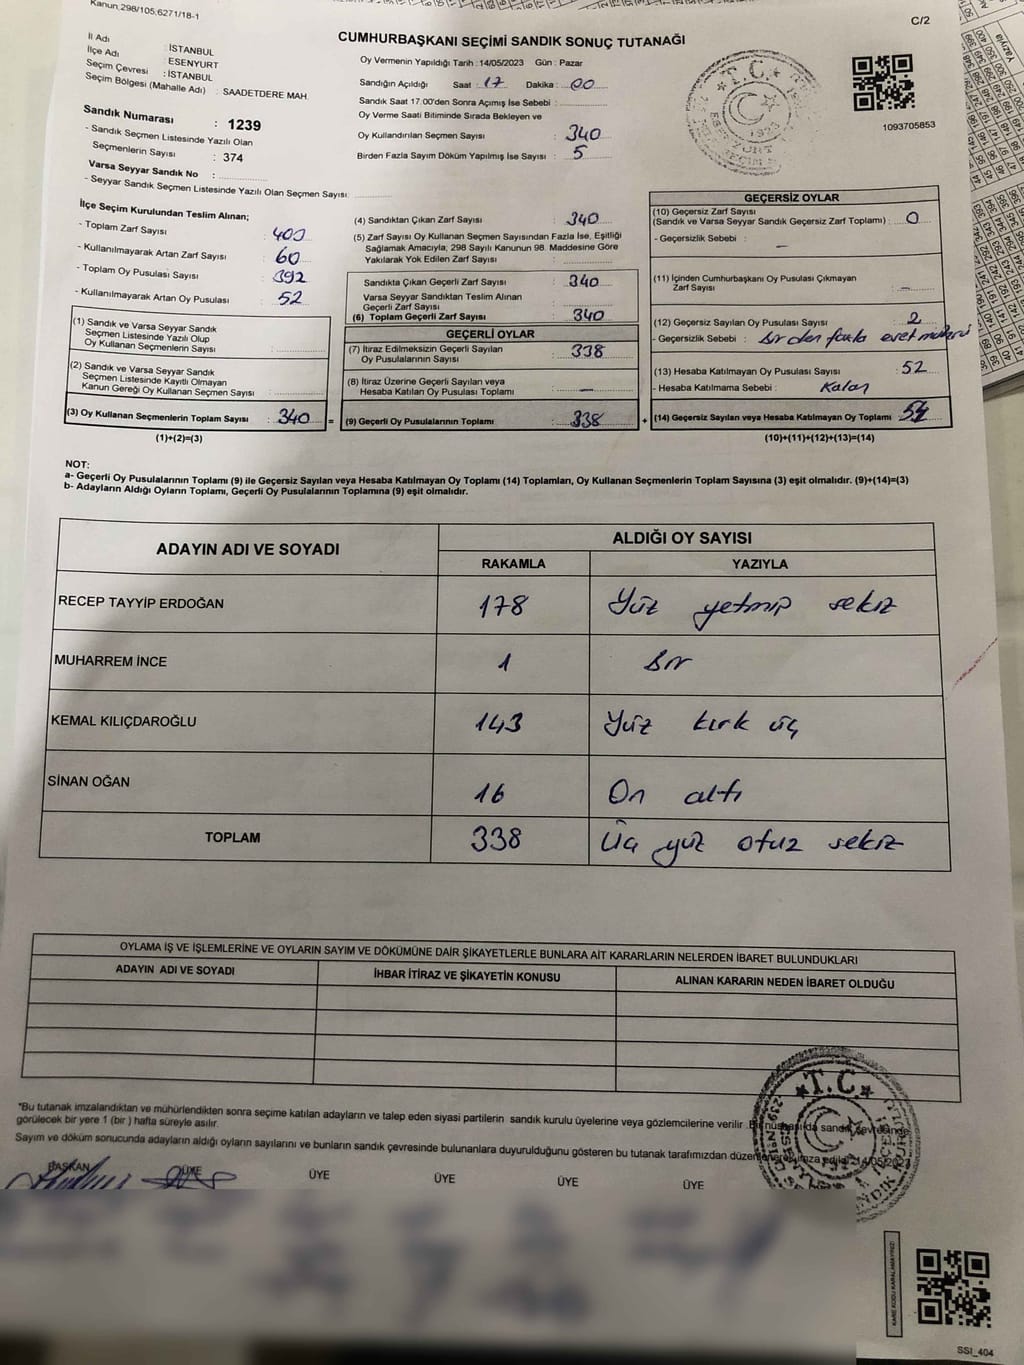 Kanun,298/105,6271/18-1
C/2
CUMHURBAŞKANI SEÇİMİ SANDIK SONUÇ TUTANAĞI
İl Adı : İSTANBUL
İlçe Adı : ESENYURT
Seçim Çevresi : İSTANBUL
Seçim Bölgesi (Mahalle Adı) : SAADETDERE MAH.
Sandık Numarası : 1239
- Sandık Seçmen Listesinde Yazılı Olan
Seçmenlerin Sayısı : 374
Varsa Seyyar Sandık No :
- Seyyar Sandık Seçmen Listesinde Yazılı Olan Seçmen Sayısı:
Oy Vermenin Yapıldığı Tarih : 14/05/2023 Gün : Pazar
Sandığın Açıldığı Saat : 17 Dakika : 00
Sandık Saat 17.00'den Sonra Açılmış İse Sebebi :
Oy Verme Saati Bitiminde Sırada Bekleyen ve
Oy Kullandırılan Seçmen Sayısı : 340
Birden Fazla Sayım Döküm Yapılmış İse Sayısı : 5
T.C.
1923
1093705853
İlçe Seçim Kurulundan Teslim Alınan;
- Toplam Zarf Sayısı : 400
- Kullanılmayarak Artan Zarf Sayısı : 60
- Toplam Oy Pusulası Sayısı : 392
- Kullanılmayarak Artan Oy Pusulası : 52
(1) Sandık ve Varsa Seyyar Sandık
Seçmen Listesinde Yazılı Olup
Oy Kullanan Seçmenlerin Sayısı :
(2) Sandık ve Varsa Seyyar Sandık
Seçmen Listesinde Kayıtlı Olmayan
Kanun Gereği Oy Kullanan Seçmen Sayısı :
(3) Oy Kullanan Seçmenlerin Toplam Sayısı : 340 =
(1)+(2)=(3)
(4) Sandıktan Çıkan Zarf Sayısı : 340
(5) Zarf Sayısı Oy Kullanan Seçmen Sayısından Fazla İse, Eşitliği
Sağlamak Amacıyla; 298 Sayılı Kanunun 98. Maddesine Göre
Yakılarak Yok Edilen Zarf Sayısı :
Sandıkta Çıkan Geçerli Zarf Sayısı : 340
Varsa Seyyar Sandıktan Teslim Alınan
Geçerli Zarf Sayısı :
(6) Toplam Geçerli Zarf Sayısı : 340
GEÇERLİ OYLAR
(7) İtiraz Edilmeksizin Geçerli Sayılan
Oy Pusulasının Sayısı : 338
(8) İtiraz Üzerine Geçerli Sayılan veya
Hesaba Katılan Oy Pusulası Toplamı : —
(9) Geçerli Oy Pusulalarının Toplamı : 338 +
GEÇERSİZ OYLAR
(10) Geçersiz Zarf Sayısı
(Sandık ve Varsa Seyyar Sandık Geçersiz Zarf Toplamı) : 0
- Geçersizlik Sebebi : —
(11) İçinden Cumhurbaşkanı Oy Pusulası Çıkmayan
Zarf Sayısı : —
(12) Geçersiz Sayılan Oy Pusulası Sayısı : 2
- Geçersizlik Sebebi : Birden fazla evet mührü
(13) Hesaba Katılmayan Oy Pusulası Sayısı : 52
- Hesaba Katılmama Sebebi : Kalan
(14) Geçersiz Sayılan veya Hesaba Katılmayan Oy Toplamı 54
(10)+(11)+(12)+(13)=(14)
NOT:
a- Geçerli Oy Pusulalarının Toplamı (9) ile Geçersiz Sayılan veya Hesaba Katılmayan Oy Toplamı (14) Toplamları, Oy Kullanan Seçmenlerin Toplam Sayısına (3) eşit olmalıdır. (9)+(14)=(3)
b- Adayların Aldığı Oyların Toplamı, Geçerli Oy Pusulalarının Toplamına (9) eşit olmalıdır.
ADAYIN ADI VE SOYADI ALDIĞI OY SAYISI
RAKAMLA YAZIYLA
RECEP TAYYİP ERDOĞAN 178 Yüz yetmiş sekiz
MUHARREM İNCE 1 Bir
KEMAL KILIÇDAROĞLU 143 Yüz kırk üç
SİNAN OĞAN 16 On altı
TOPLAM 338 Üç yüz otuz sekiz
OYLAMA İŞ VE İŞLEMLERİNE VE OYLARIN SAYIM VE DÖKÜMÜNE DAİR ŞİKAYETLERLE BUNLARA AİT KARARLARIN NELERDEN İBARET BULUNDUKLARI
ADAYIN ADI VE SOYADI İHBAR İTİRAZ VE ŞİKAYETİN KONUSU ALINAN KARARIN NEDEN İBARET OLDUĞU
*Bu tutanak imzalandıktan ve mühürlendikten sonra seçime katılan adayların ve talep eden siyasi partilerin sandık kurulu üyelerine veya gözlemcilerine verilir. Bir nüshası da sandık çevresinde
görülecek bir yere 1 (bir ) hafta süreyle asılır.
Sayım ve döküm sonucunda adayların aldığı oyların sayılarını ve bunların sandık çevresinde bulunanlara duyurulduğunu gösteren bu tutanak tarafımızdan düzenlenerek imza edildi.14/05/2023
BAŞKAN ÜYE ÜYE ÜYE ÜYE ÜYE
T.C.
SSI_404